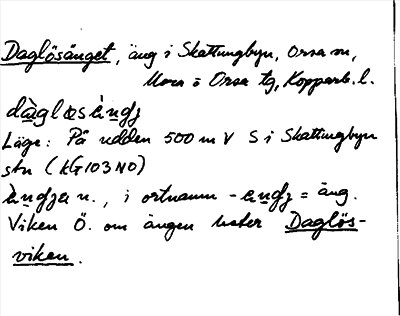 Daglösänget, äng i Skattungbyn, Orsa sn,
Mora o Orsa tg, Kopparb. l.
dàglœsèngʒ
Läge: På udden 500 m V S i Skattungbyn
stn (KG103NO)
èngʒa n., i ortnamn -engʒ = äng.
Viken Ö. om ängen heter Daglös-
viken.